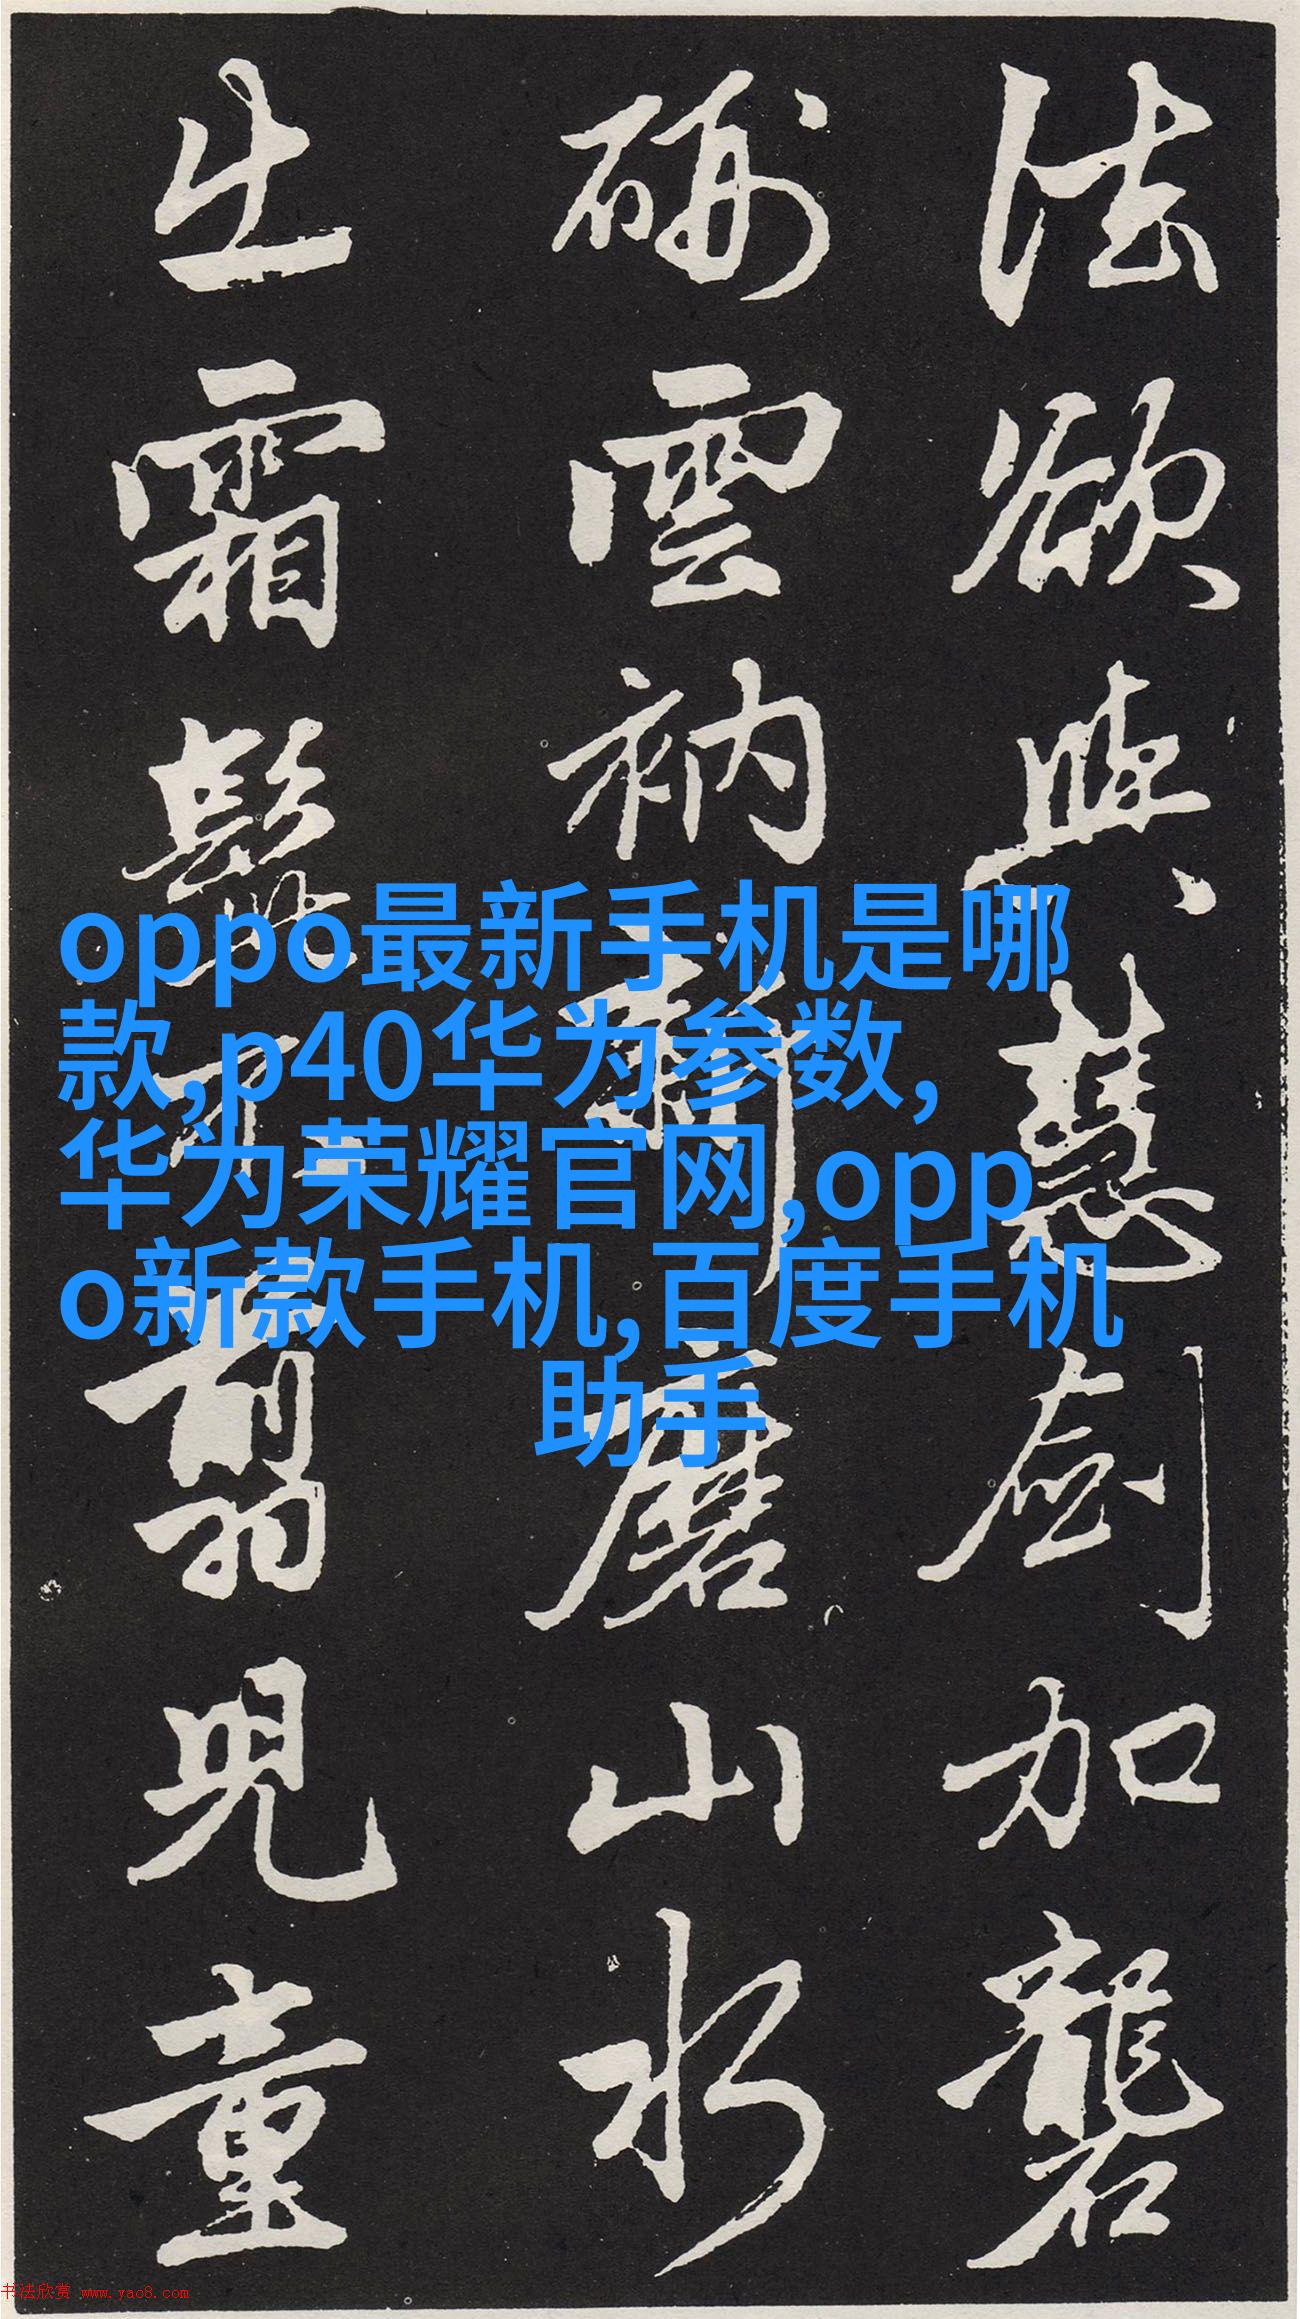 法欲與慧劍加礱
硎雲衲新磨山水
出霜髭不翦兒童
oppo最新手机是哪
款,p40华为参数,
华为荣耀官网,opp
o新款手机,百度手机
助手
书法欣赏 www.yac8.com